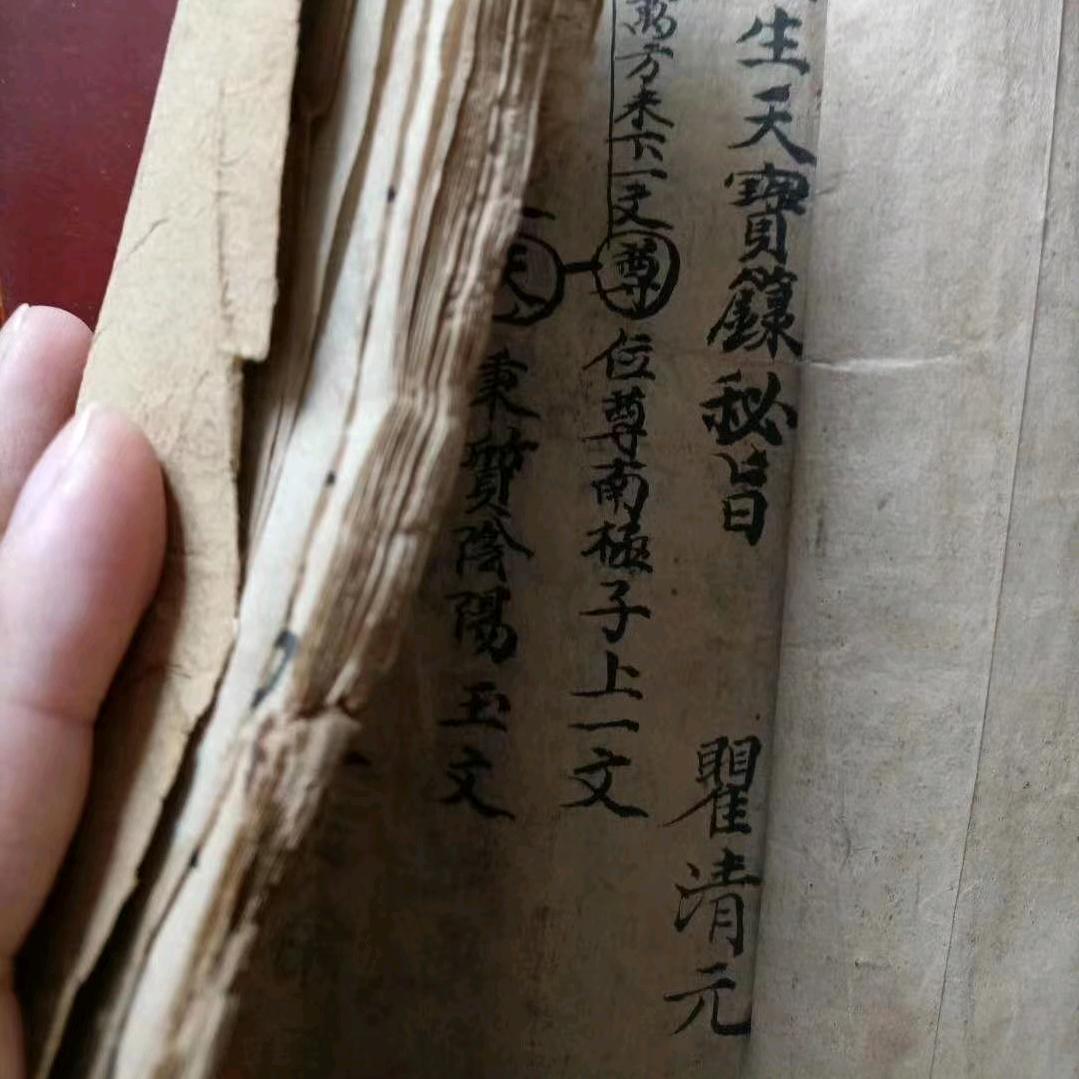 生天寶籙秘旨 瞿清元
萬方来下一文 尊 位尊南極子上一文
天 秉質陰陽玉文